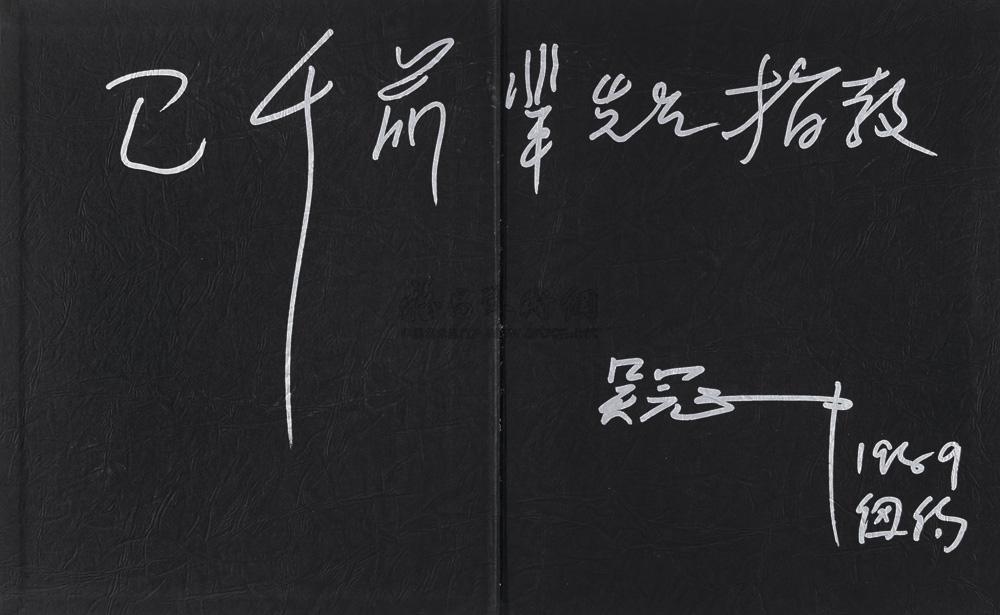 己千前辈先生指教
吴冠中
1989
纽约